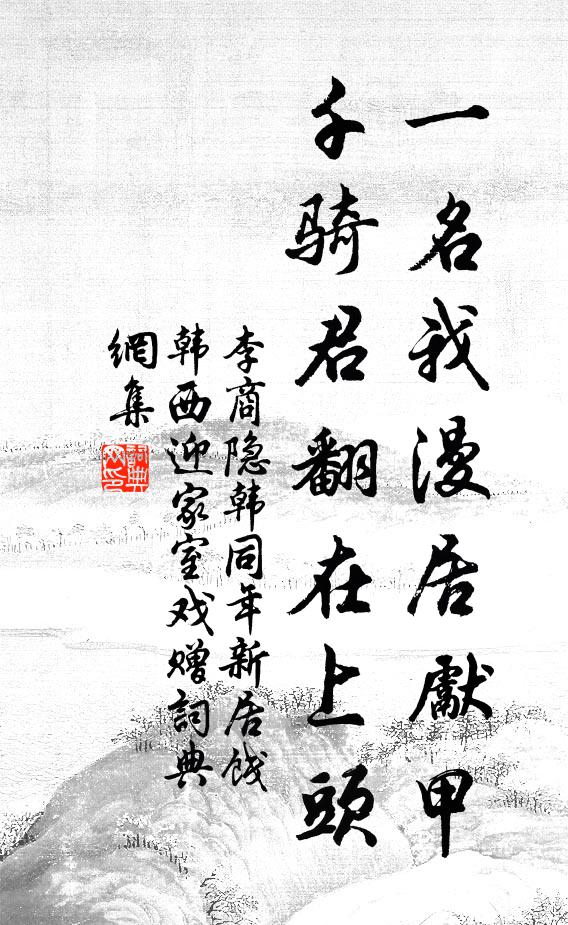 一名我漫居獻甲
千骑君翻在上頭
李商隐韩同年新居饯
韩西迎家室戏赠詞典
網集
詞典
网印